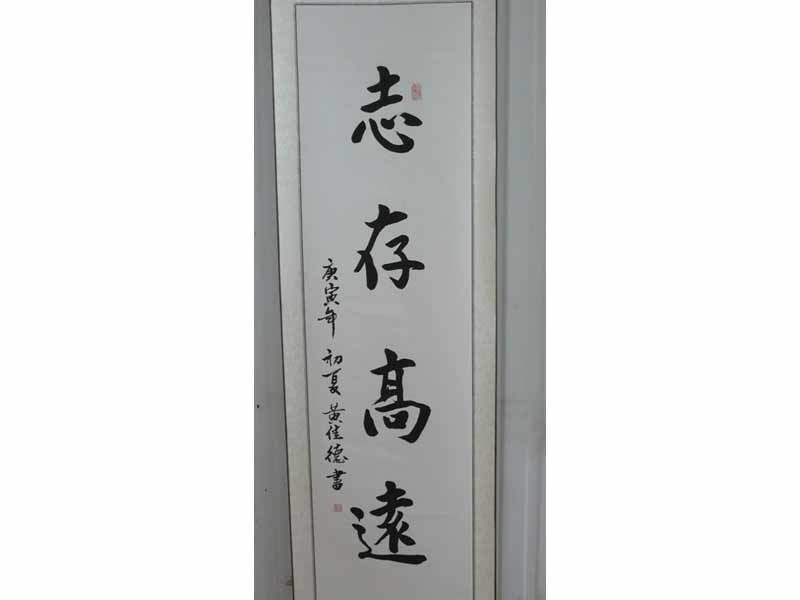 志存高遠
庚寅年初夏黄佳德書